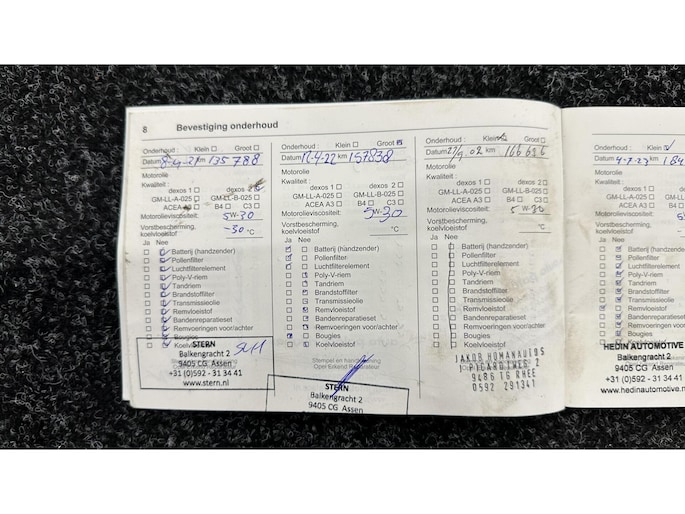 8 Bevestiging onderhoud
Onderhoud : Klein Groot
Datum 8-4-21 km 135788
Motorolie
Kwaliteit :
dexos 1 dexos 2
GM-LL-A-025 GM-LL-B-025
ACEA A3 B4 C3
Motorolieviscositeit: 5W-30
Vorstbescherming,
koelvloeistof -30 °C
Ja Nee
Batterij (handzender)
Pollenfilter
Luchtfilterelement
Poly-V-riem
Tandriem
Brandstoffilter
Transmissieolie
Remvloeistof
Bandenreparatieset
Remvoeringen voor/achter
Bougies
Koelvloeistof
STERN
Balkengracht 2
9405 CG Assen
+31 (0)592 - 31 34 41
www.stern.nl
Onderhoud : Klein Groot
Datum 12-4-22 km 157838
Motorolie
Kwaliteit :
dexos 1 dexos 2
GM-LL-A-025 GM-LL-B-025
ACEA A3 B4 C3
Motorolieviscositeit: 5W-30
Vorstbescherming,
koelvloeistof °C
Ja Nee
Batterij (handzender)
Pollenfilter
Luchtfilterelement
Poly-V-riem
Tandriem
Brandstoffilter
Transmissieolie
Remvloeistof
Bandenreparatieset
Remvoeringen voor/achter
Bougies
Koelvloeistof
Stempel en
Opel Erkend Reparateur
STERN
Balkengracht 2
9405 CG Assen
Onderhoud : Klein Groot
Datum km
Motorolie
Kwaliteit :
dexos 1 dexos 2
GM-LL-A-025 GM-LL-B-025
ACEA A3 B4 C3
Motorolieviscositeit: 5W-30
Vorstbescherming,
koelvloeistof °C
Ja Nee
Batterij (handzender)
Pollenfilter
Luchtfilterelement
Poly-V-riem
Tandriem
Brandstoffilter
Transmissieolie
Remvloeistof
Bandenreparatieset
Remvoeringen voor/achter
Bougies
Koelvloeistof
JAKOB HOMANAUTOS
9486 TG RHEE
0592 291341
Onderhoud : Klein
Datum 4-7-23 km
Motorolie
Kwaliteit :
dexos 1
GM-LL-A-025
ACEA A3
Motorolieviscositeit:
Vorstbescherming,
koelvloeistof
Ja Nee
Batterij (handze
Pollenfilter
Luchtfilterelement
Poly-V-riem
Tandriem
Brandstoffilter
Transmissieolie
Remvloeistof
Bandenreparatieset
Remvoeringen voor/
Bougies
Koelvloeistof
HEDIN AUTOMOTIVE
Balkengracht 2
9405 CG Assen
+31 (0)592 - 31 34 41
www.hedinautomotive.n